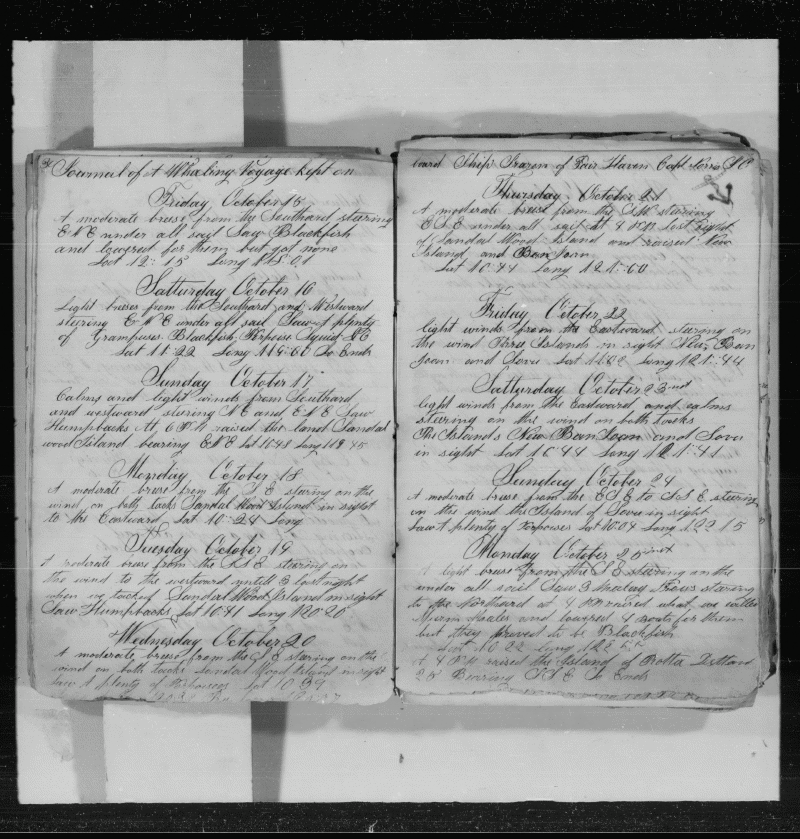 Journal of A Whaling Voyage kept on
Friday October 15
A moderate brese from the Southard steering
ENE under all sail Saw Blackfish
and lowered for them but got none
Lat 12:15 Long 115:01
Satturday October 16
Light breses from the Southard and Westward
steering ENE under all sail Saw A plenty
of Grampuses Blackfish Porpoises Squid &c
Lat 11:22 Long So Ends
Sunday October 17
Calms and light winds from Southard
and westward stering NE and ENE Saw
Humpbacks At 6 PM raised the land Sandal
wood Island bearing ENE Lat 10 48 Long 118 45
Monday October 18
A moderate brese from the SE staring on the
wind on both tacks Sandal Wood Island in sight
to the Eastward Lat 10-24 Long
Tuesday October 19
A moderate brese from the staring on
the wind to the westward untill 3 last night
when we tacked Sandal Wood Island in sight
Saw Humpbacks Lat 10:41 Long 120 20
Wednesday October 20
A moderate brese from the SE staring on the
wind on both tacks Sandal Wood Island in sight
Saw A plenty of Porpoises Lat 10 39
board Ship of Fair Haven Capt
Thursday October 21
A moderate brese from the steering
ESE under all sail at 4 PM Lost sight
of Sandal Wood Island and raised New
Island and
Lat 10:44 Long 121:00
Friday October 22
light winds from the Eastward staring on
the wind Three Islands in sight New Ban
Joan and Sovu Lat Long 121:44
Satturday October 23 inst
light winds from the Eastward and calms
staring on the wind on both tacks
The Islands New Ban Joan and Sovu
in sight Lat 10:44 Long 121:41
Sunday October 24
A moderate brese from the ESE to SSE steering
on the wind the Island of Sovu in sight
Saw A plenty of Porpoises Lat 10:04 Long 122 15
Monday October 25 inst
A light brese from the SE staring on the
under all sail Saw 3 Prows staring
to the Northward at 4 PM raised what we called
Sperm Whales and lowered 4 boats for them
but they proved to be Blackfish
Lat 10 22 Long
A 4 PM raised the Island of Rotta Distant
25 Bearing SSE So Ends